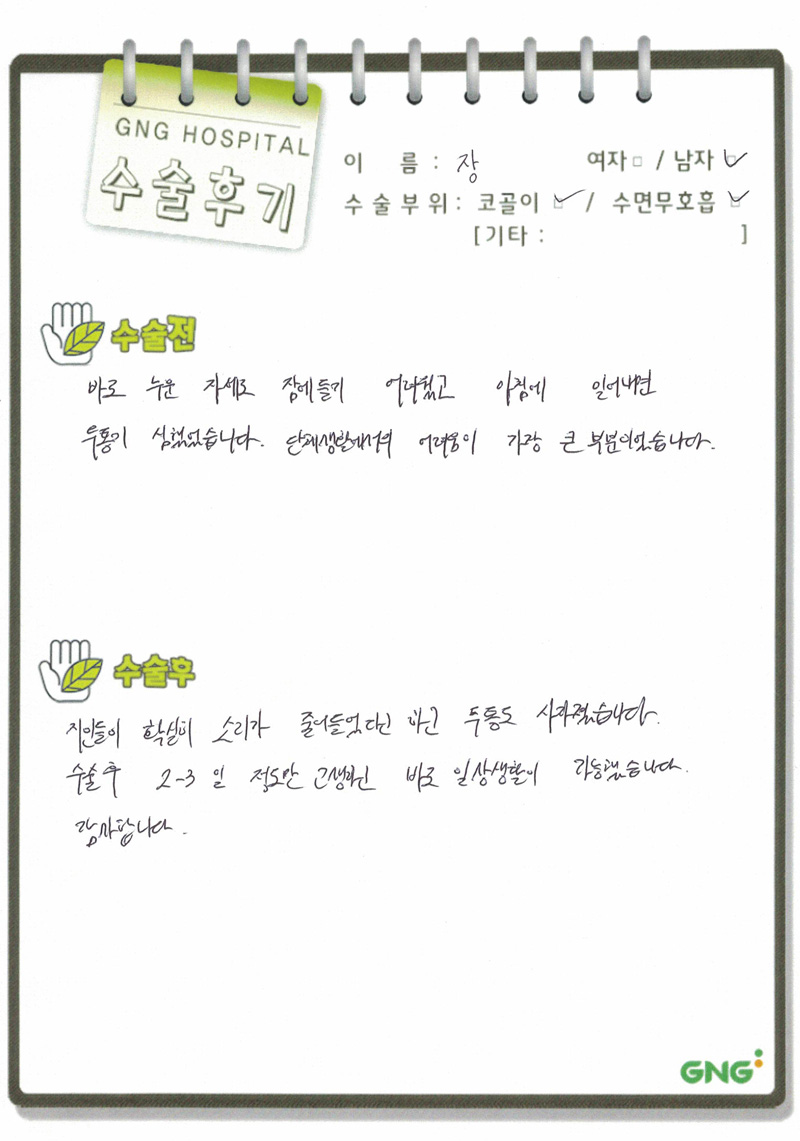 GNG HOSPITAL
수술후기
이 름 : 장 여자 □ / 남자 ☑
수술부위 : 코골이 ☑ / 수면무호흡 ☑
[기타 : ]
수술전
바로 누운 자세로 잠에들기 어려웠고 아침에 일어나면
두통이 심했었습니다. 단체생활에서의 어려움이 가장 큰 부분이었습니다.
수술후
지인들이 확실히 소리가 줄어들었다고 하고 두통도 사라졌습니다.
수술후 2-3일 정도만 고생하면 바로 일상생활이 가능했습니다.
감사합니다.
GNG